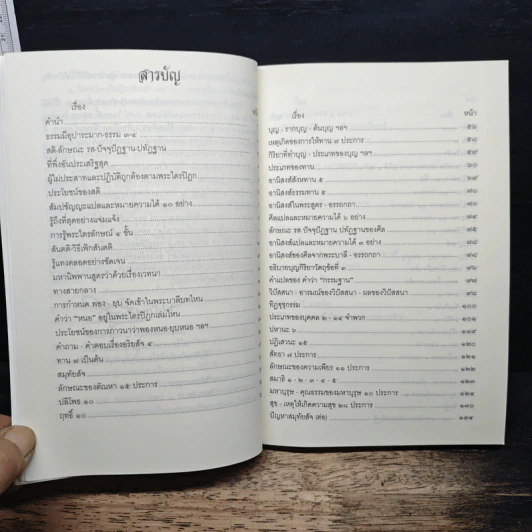 สารบัญ
เรื่อง
คำนำ
ธรรมมีอุปาระมาก-ธรรม ๓-๔
สติ-ลักษณะ รส-ปัจจุปัฏฐาน-ปทัฏฐาน
ที่พึ่งอันประเสริฐสุด
ผู้ไม่ประมาทและปฏิบัติถูกต้องตามพระไตรปิฎก
ประโยชน์ของสติ
สัมปชัญญะแปลและหมายความได้ ๑๐ อย่าง
รู้ถึงที่สุดอย่างแจ่มแจ้ง
การรู้พระไตรลักษณ์ ๔ ชั้น
สันตติ-วิธีเพิกสันตติ
รู้แทงตลอดอย่างชัดเจน
มหานิพพานสูตรว่าด้วยเรื่องเวทนา
ทางสายกลาง
การกำหนด พอง - ยุบ จัดเข้าในพระบาลีบทไหน
คำว่า "หนอ" อยู่ในพระไตรปิฎกเล่มไหน
ประโยชน์ของการภาวนาว่าพองหนอ-ยุบหนอ ฯลฯ
คำถาม - คำตอบเรื่องอริยสัจ ๔
ทาน ๗ เป็นต้น
สมุทัยสัจ
ลักษณะของตัณหา ๑๕ ประการ
ปลิโพธ ๑๐
ฤทธิ์ ๑๐
เรื่อง หน้า
บุญ - รากบุญ - ต้นบุญ ฯลฯ ๕๖
เหตุเกิดของการให้ทาน ๗ ประการ ๕๘
กิริยาที่ทำบุญ - ประเภทของบุญ ฯลฯ ๕๙
ประเภทของทาน ๖๐
อานิสงส์สังหทาน ๕
อานิสงส์ธรรมทาน ๕
อานิสงส์ในพระสูตร - อรรถกถา
ศีลแปลและหมายความได้ ๖ อย่าง ๗๔
ลักษณะ รส ปัจจุปัฏฐาน ปทัฏฐานของศีล
อานิสงส์แปลและหมายความได้ ๓ อย่าง
อานิสงส์ของศีลจากพระบาลี - อรรถกถา
อธิบายบุญกิริยาวัตถุข้อที่ ๓
คำแปลของ คำว่า "กรรมฐาน"
วิปัสสนา - อารมณ์ของวิปัสสนา - ผลของวิปัสสนา
ทิฏฐุชุกรรม ๑๐๐
ประเภทของบุคคล ๒ - ๑๔ จำพวก
ปหานะ ๖ ๑๑๘
ปฏิเสวนะ ๑๕
ศรัทธา ๗ ประการ
ลักษณะของความเพียร ๑๑ ประการ ๑๒๒
สมาธิ ๑ - ๒ - ๓ - ๔ - ๕ ๑๒๓
มหาบุรุษ - คุณธรรมของมหาบุรุษ ๑๐ ประการ ๑๒๕
สุข - เหตุให้เกิดความสุข ๒๘ ประการ ๑๓๐
ปัญหาสมุทัยสัจ (ต่อ)